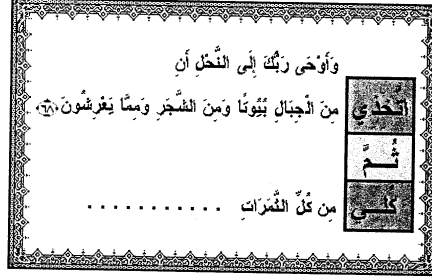 وَأَوْحَى رَبُّكَ إِلَى النَّحْلِ أَنِ
اتَّخِذِي مِنَ الْجِبَالِ بُيُوتًا وَمِنَ الشَّجَرِ وَمِمَّا يَعْرِشُونَ ﴿٦٨﴾
ثُمَّ
كُلِي مِن كُلِّ الثَّمَرَاتِ . . . . . . . . . . .